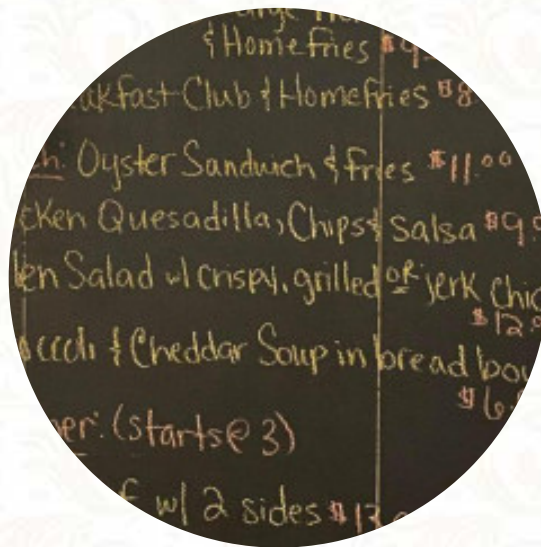 & Homefries $9
akfast Club & Homefries $8
h: Oyster Sandwich & fries $11.00
cken Quesadilla, Chips & Salsa $9.
en Salad w/ crispy, grilled or jerk Chic
$12.
ccoli & Cheddar Soup in bread bow
$6.
er: (starts @ 3)
f w/ 2 sides $13